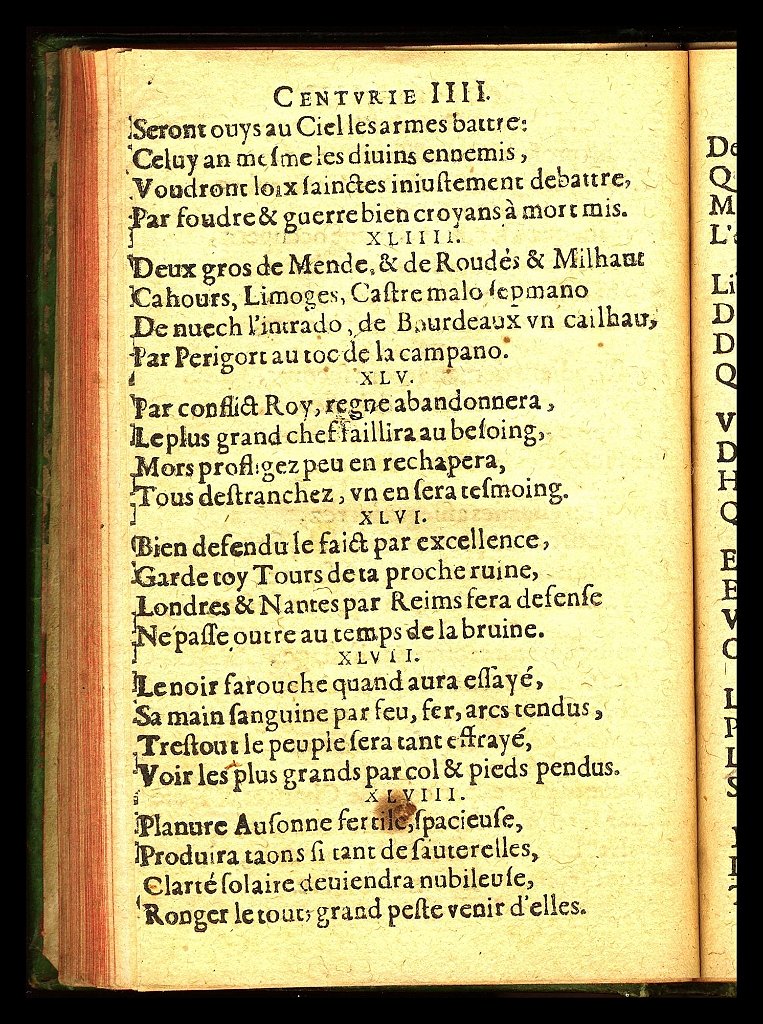 CENTVRIE IIII.
Seront ouys au Ciel les armes battre:
Celuy an meſme les diuins ennemis,
Voudront loix ſainctes iniuſtement debattre,
Par foudre & guerre bien croyans à mort mis.
XLIIII.
Deux gros de Mende, & de Roudés & Milhaut
Cahours, Limoges, Caſtre malo ſepmano
De nuech l'intrado, de Bourdeaux vn cailhau,
Par Perigort au toc de la campano.
XLV.
Par conflict Roy, regne abandonnera,
Le plus grand chef faillira au beſoing,
Mors profligez peu en rechapera,
Tous deſtranchez, vn en ſera teſmoing.
XLVI.
Bien defendu le faict par excellence,
Garde toy Tours de ta proche ruine,
Londres & Nantes par Reims fera defenſe
Ne paſſe outre au temps de la bruine.
XLVII.
Le noir farouche quand aura eſſayé,
Sa main ſanguine par feu, fer, arcs tendus,
Treſtout le peuple ſera tant effrayé,
Voir les plus grands par col & pieds pendus.
XLVIII.
Planure Auſonne fertile, ſpacieuſe,
Produira taons ſi tant de ſauterelles,
Clarté ſolaire deuiendra nubileuſe,
Ronger le tout, grand peſte venir d'elles.
De
Q
M
L'a
Li
D
D
Q
V
D
H
Q
E
E
V
L
P
L
S